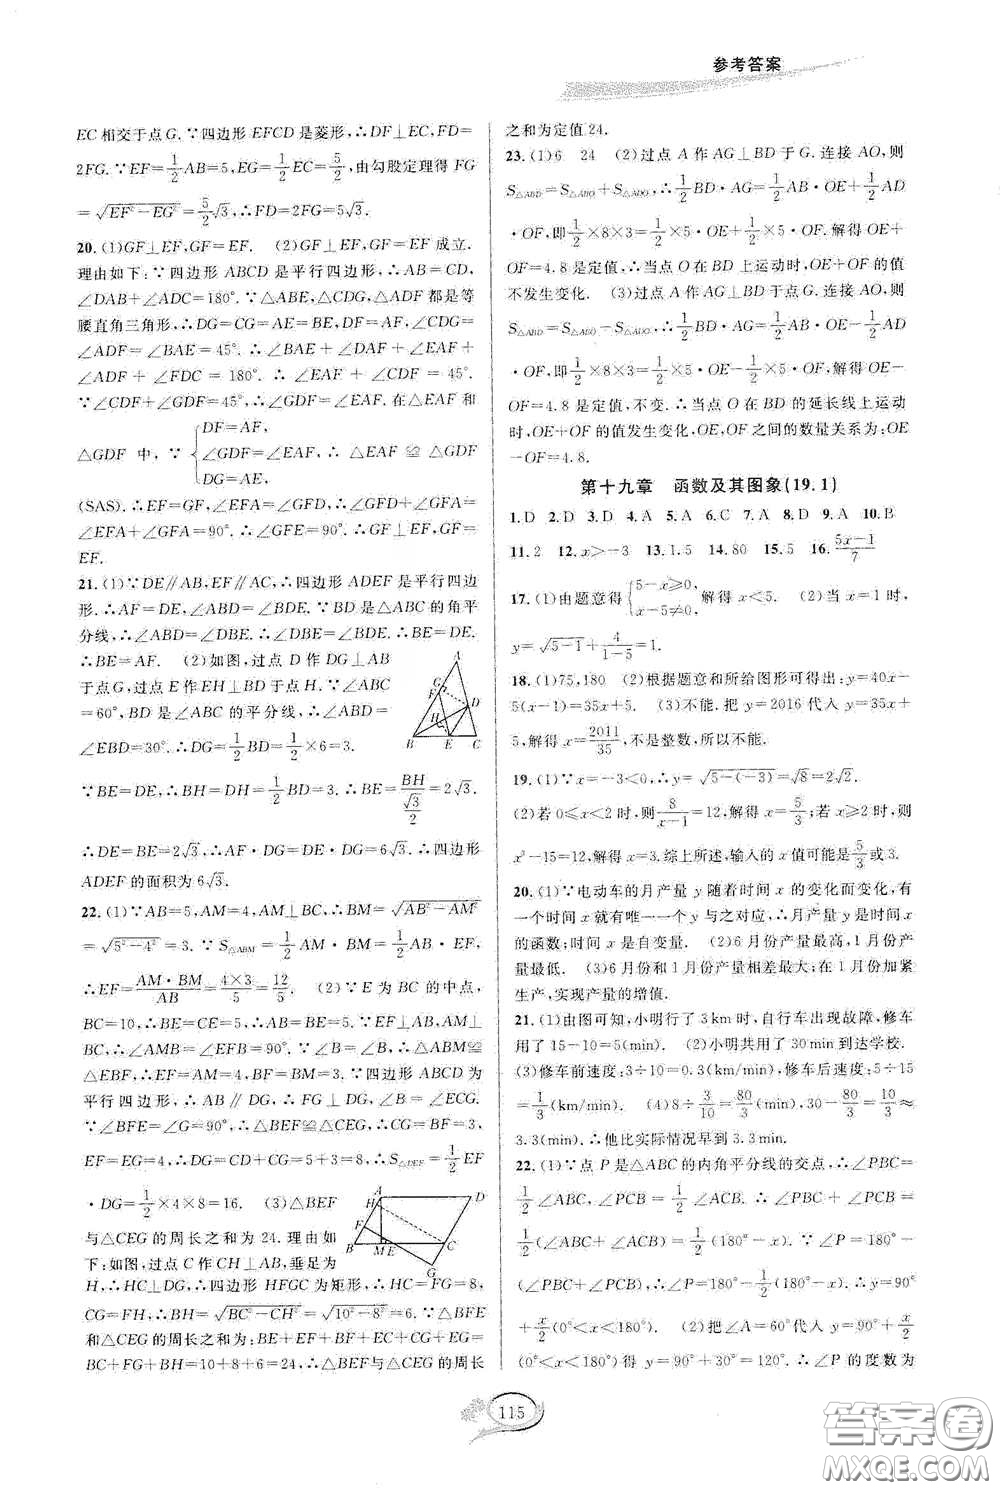 参考答案
EC相交于点G.∵四边形EFCD是菱形,∴DF⊥EC,FD=
2FG.∵EF=1/2AB=5,EG=1/2EC=5/2,由勾股定理得FG
=√(EF²-EG²)=5/2√3,∴FD=2FG=5√3.
20. (1)GF⊥EF,GF=EF. (2)GF⊥EF,GF=EF成立.
理由如下:∵四边形ABCD是平行四边形,∴AB=CD,
∠DAB+∠ADC=180°.∵△ABE,△CDG,△ADF都是等
腰直角三角形,∴DG=CG=AE=BE,DF=AF,∠CDG=
∠ADF=∠BAE=45°.∴∠BAE+∠DAF+∠EAF+
∠ADF+∠FDC=180°.∴∠EAF+∠CDF=45°.
∵∠CDF+∠GDF=45°,∴∠GDF=∠EAF.在△EAF和
△GDF中,∵{DF=AF,
∠GDF=∠EAF,∴△EAF≌△GDF
DG=AE,
(SAS).∴EF=GF,∠EFA=∠GFD,∴∠GFD+∠GFA=
∠EFA+∠GFA=90°.∴∠GFE=90°.∴GF⊥EF,GF=
EF.
21. (1)∵DE∥AB,EF∥AC,∴四边形ADEF是平行四边
形.∴AF=DE,∠ABD=∠BDE.∵BD是△ABC的角平
分线,∴∠ABD=∠DBE.∴∠DBE=∠BDE.∴BE=DE.
∴BE=AF. (2)如图,过点D作DG⊥AB
于点G,过点E作EH⊥BD于点H.∵∠ABC
=60°,BD是∠ABC的平分线,∴∠ABD=
∠EBD=30°.∴DG=1/2BD=1/2×6=3.
∵BE=DE,∴BH=DH=1/2BD=3.∴BE=BH/(√3/2)=2√3.
∴DE=BE=2√3,∴AF·DG=DE·DG=6√3.∴四边形
ADEF的面积为6√3.
A
G
F
D
H
B
E
C
22. (1)∵AB=5,AM=4,AM⊥BC,∴BM=√(AB²-AM²)
=√(5²-4²)=3.∵S△ABM=1/2AM·BM=1/2AB·EF,
∴EF=AM·BM/AB=4×3/5=12/5. (2)∵E为BC的中点,
BC=10,∴BE=CE=5,∴AB=BE=5.∵EF⊥AB,AM⊥
BC,∴∠AMB=∠EFB=90°.∵∠B=∠B,∴△ABM≌
△EBF,∴EF=AM=4,BF=BM=3.∵四边形ABCD为
平行四边形,∴AB∥DG,∴FG⊥DG,∠FBE=∠ECG.
∵∠BFE=∠G=90°,∴△BEF≌△CEG,∴CG=BF=3,
EF=EG=4,∴DG=CD+CG=5+3=8,∴S△DEF=1/2EF
·DG=1/2×4×8=16. (3)△BEF
与△CEG的周长之和为24.理由如
下:如图,过点C作CH⊥AB,垂足为
H,∴HC⊥DG,∴四边形HFGC为矩形,∴HC=FG=8,
CG=FH,∴BH=√(BC²-CH²)=√(10²-8²)=6.∵△BFE
和△CEG的周长之和为:BE+EF+BF+CE+CG+EG=
BC+FG+BH=10+8+6=24,∴△BEF与△CEG的周长
A
H
D
F
B
M
E
C
G
之和为定值24.
23. (1)6 24 (2)过点A作AG⊥BD于G.连接AO,则
S△ABD=S△ABO+S△ADO.∴1/2BD·AG=1/2AB·OE+1/2AD
·OF,即1/2×8×3=1/2×5·OE+1/2×5·OF.解得OE+
OF=4.8是定值,∴当点O在BD上运动时,OE+OF的值
不发生变化. (3)过点A作AG⊥BD于点G.连接AO,则
S△ABD=S△ABO-S△ADO.∴1/2BD·AG=1/2AB·OE-1/2AD
·OF,即1/2×8×3=1/2×5·OE-1/2×5·OF.解得OE-
OF=4.8是定值,不变.∴当点O在BD的延长线上运动
时,OE+OF的值发生变化,OE,OF之间的数量关系为:OE
-OF=4.8.
第十九章 函数及其图象(19.1)
1.D 2.D 3.D 4.A 5.A 6.C 7.A 8.D 9.A 10.B
11.2 12.x>-3 13.1.5 14.80 15.5 16.(5x-1)/7
17. (1)由题意得{5-x≥0, x-5≠0, 解得x<5. (2)当x=1时,
y=√(5-1)+4/(1-5)=1.
18. (1)75,180 (2)根据题意和所给图形可得出:y=40x-
5(x-1)=35x+5. (3)不能.把y=2016代入y=35x+
5,解得x=2011/35,不是整数,所以不能.
19. (1)∵x=-3<0,∴y=√(5-(-3))=√8=2√2.
(2)若0≤x<2时,则8/(x-1)=12,解得x=5/3;若x≥2时,
x²-15=12,解得x=3.综上所述,输入的x值可能是5/3或3.
20. (1)∵电动车的月产量y随着时间x的变化而变化,有
一个时间x就有唯一一个y与之对应,∴月产量y是时间x
的函数;时间x是自变量. (2)6月份产量最高,1月份产
量最低. (3)6月份和1月份产量相差最大;在1月份加紧
生产,实现产量的增值.
21. (1)由图可知,小明行了3 km时,自行车出现故障,修车
用了15-10=5(min). (2)小明共用了30 min到达学校.
(3)修车前速度:3÷10=0.3(km/min),修车后速度:5÷15
=1/3(km/min). (4)8÷3/10=80/3(min),30-80/3=10/3≈
3.3(min).∴他比实际情况早到3.3 min.
22. (1)∵点P是△ABC的内角平分线的交点,∴∠PBC=
1/2∠ABC,∠PCB=1/2∠ACB.∴∠PBC+∠PCB=
1/2(∠ABC+∠ACB)=1/2(180°-x).∵∠P=180°-
(∠PBC+∠PCB),∴∠P=180°-1/2(180°-x).∴y=90°
+x/2(0°<x<180°). (2)把∠A=60°代入y=90°+x/2
(0°<x<180°)得y=90°+30°=120°.∴∠P的度数为
115
答案卷
MXQE.COM